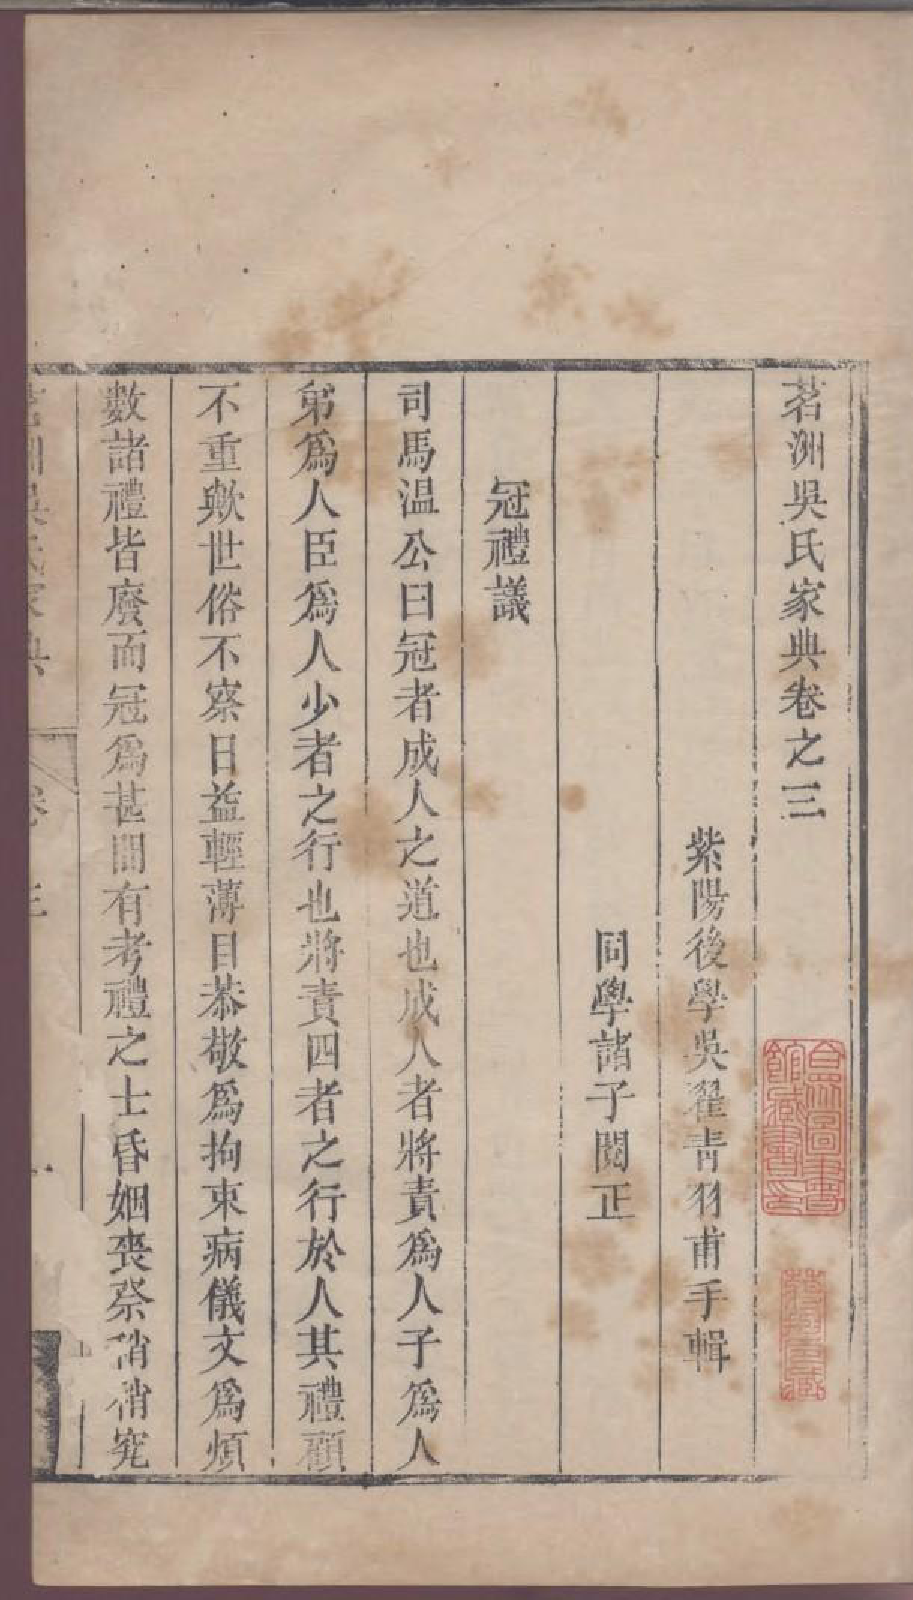 茗洲吳氏家典卷之三
紫陽後學吳翟青羽甫手輯
同學諸子閱正
冠禮議
司馬温公曰冠者成人之道也成人者將責爲人子爲人
弟爲人臣爲人少者之行也將責四者之行於人其禮顧
不重歟世俗不察日益輕薄目恭敬爲拘束病儀文爲煩
數諸禮皆廢而冠爲甚間有考禮之士昏姻喪祭稍稍究